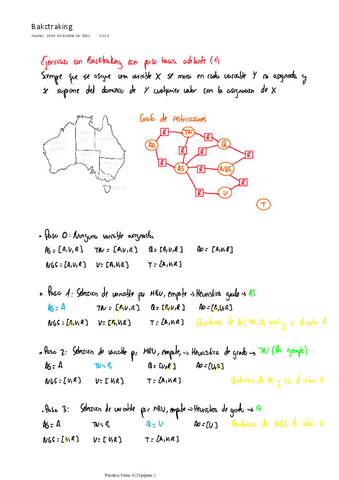 Bakctraking
Ejercicio con Backtraking con paso hacia adelante (1)
Siempre que se asigne una variable X se mira en cada variable Y no asignada y
se suprime del dominio de Y cualquier valor con la asignación de X
Grafo de restricciones
R TN R
AO R R Q
R AS R R
R NGS
R R
V
T
• Paso 0: Ninguna variable asignada
AS = {A,V,R} TN = {A,V,R} Q = {A,V,R} AO = {A,V,R}
NGS = {A,V,R} V = {A,V,R} T = {A,V,R}
• Paso 1: Selección de variable por MRV, empate → Heurística grado → AS
AS = A TN = {A,V,R} Q = {A,V,R} AO = {A,V,R}
NGS = {A,V,R} V = {A,V,R} T = {A,V,R} Quitamos de AO, TN, Q, NGS y V el valor A
• Paso 2: Selección de variable por MRV, empate, → Heurística de grado → TN (Por ejemplo)
AS = A TN = R Q = {V,R} AO = {V,R}
NGS = {V,R} V = {V,R} T = {A,V,R} Quitamos de AO y Q el valor
• Paso 3: Selección de variable por MRV, empate → Heurística de grado → Q
AS = A TN = R Q = V AO = {V} Quitamos de NGS el valor V
NGS = {V,R} V = {V,R} T = {A,V,R}